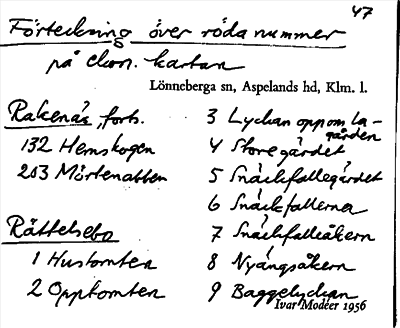 47
Förteckning över röda nummer
på ekon. kartan
Lönneberga sn, Aspelands hd, Klm. l.
Rakenäs, forts.
132 Hemskogen
203 Mårtenatten
Rättelsebo
1 Hustomten
2 Opptomten
3 Lyckan oppom la-
gården
4 Storegärdet
5 Snäckfallegärdet
6 Snäckfallerna
7 Snäckfalleåkern
8 Nyängsåkern
9 Baggelyckan
Ivar Modéer 1956